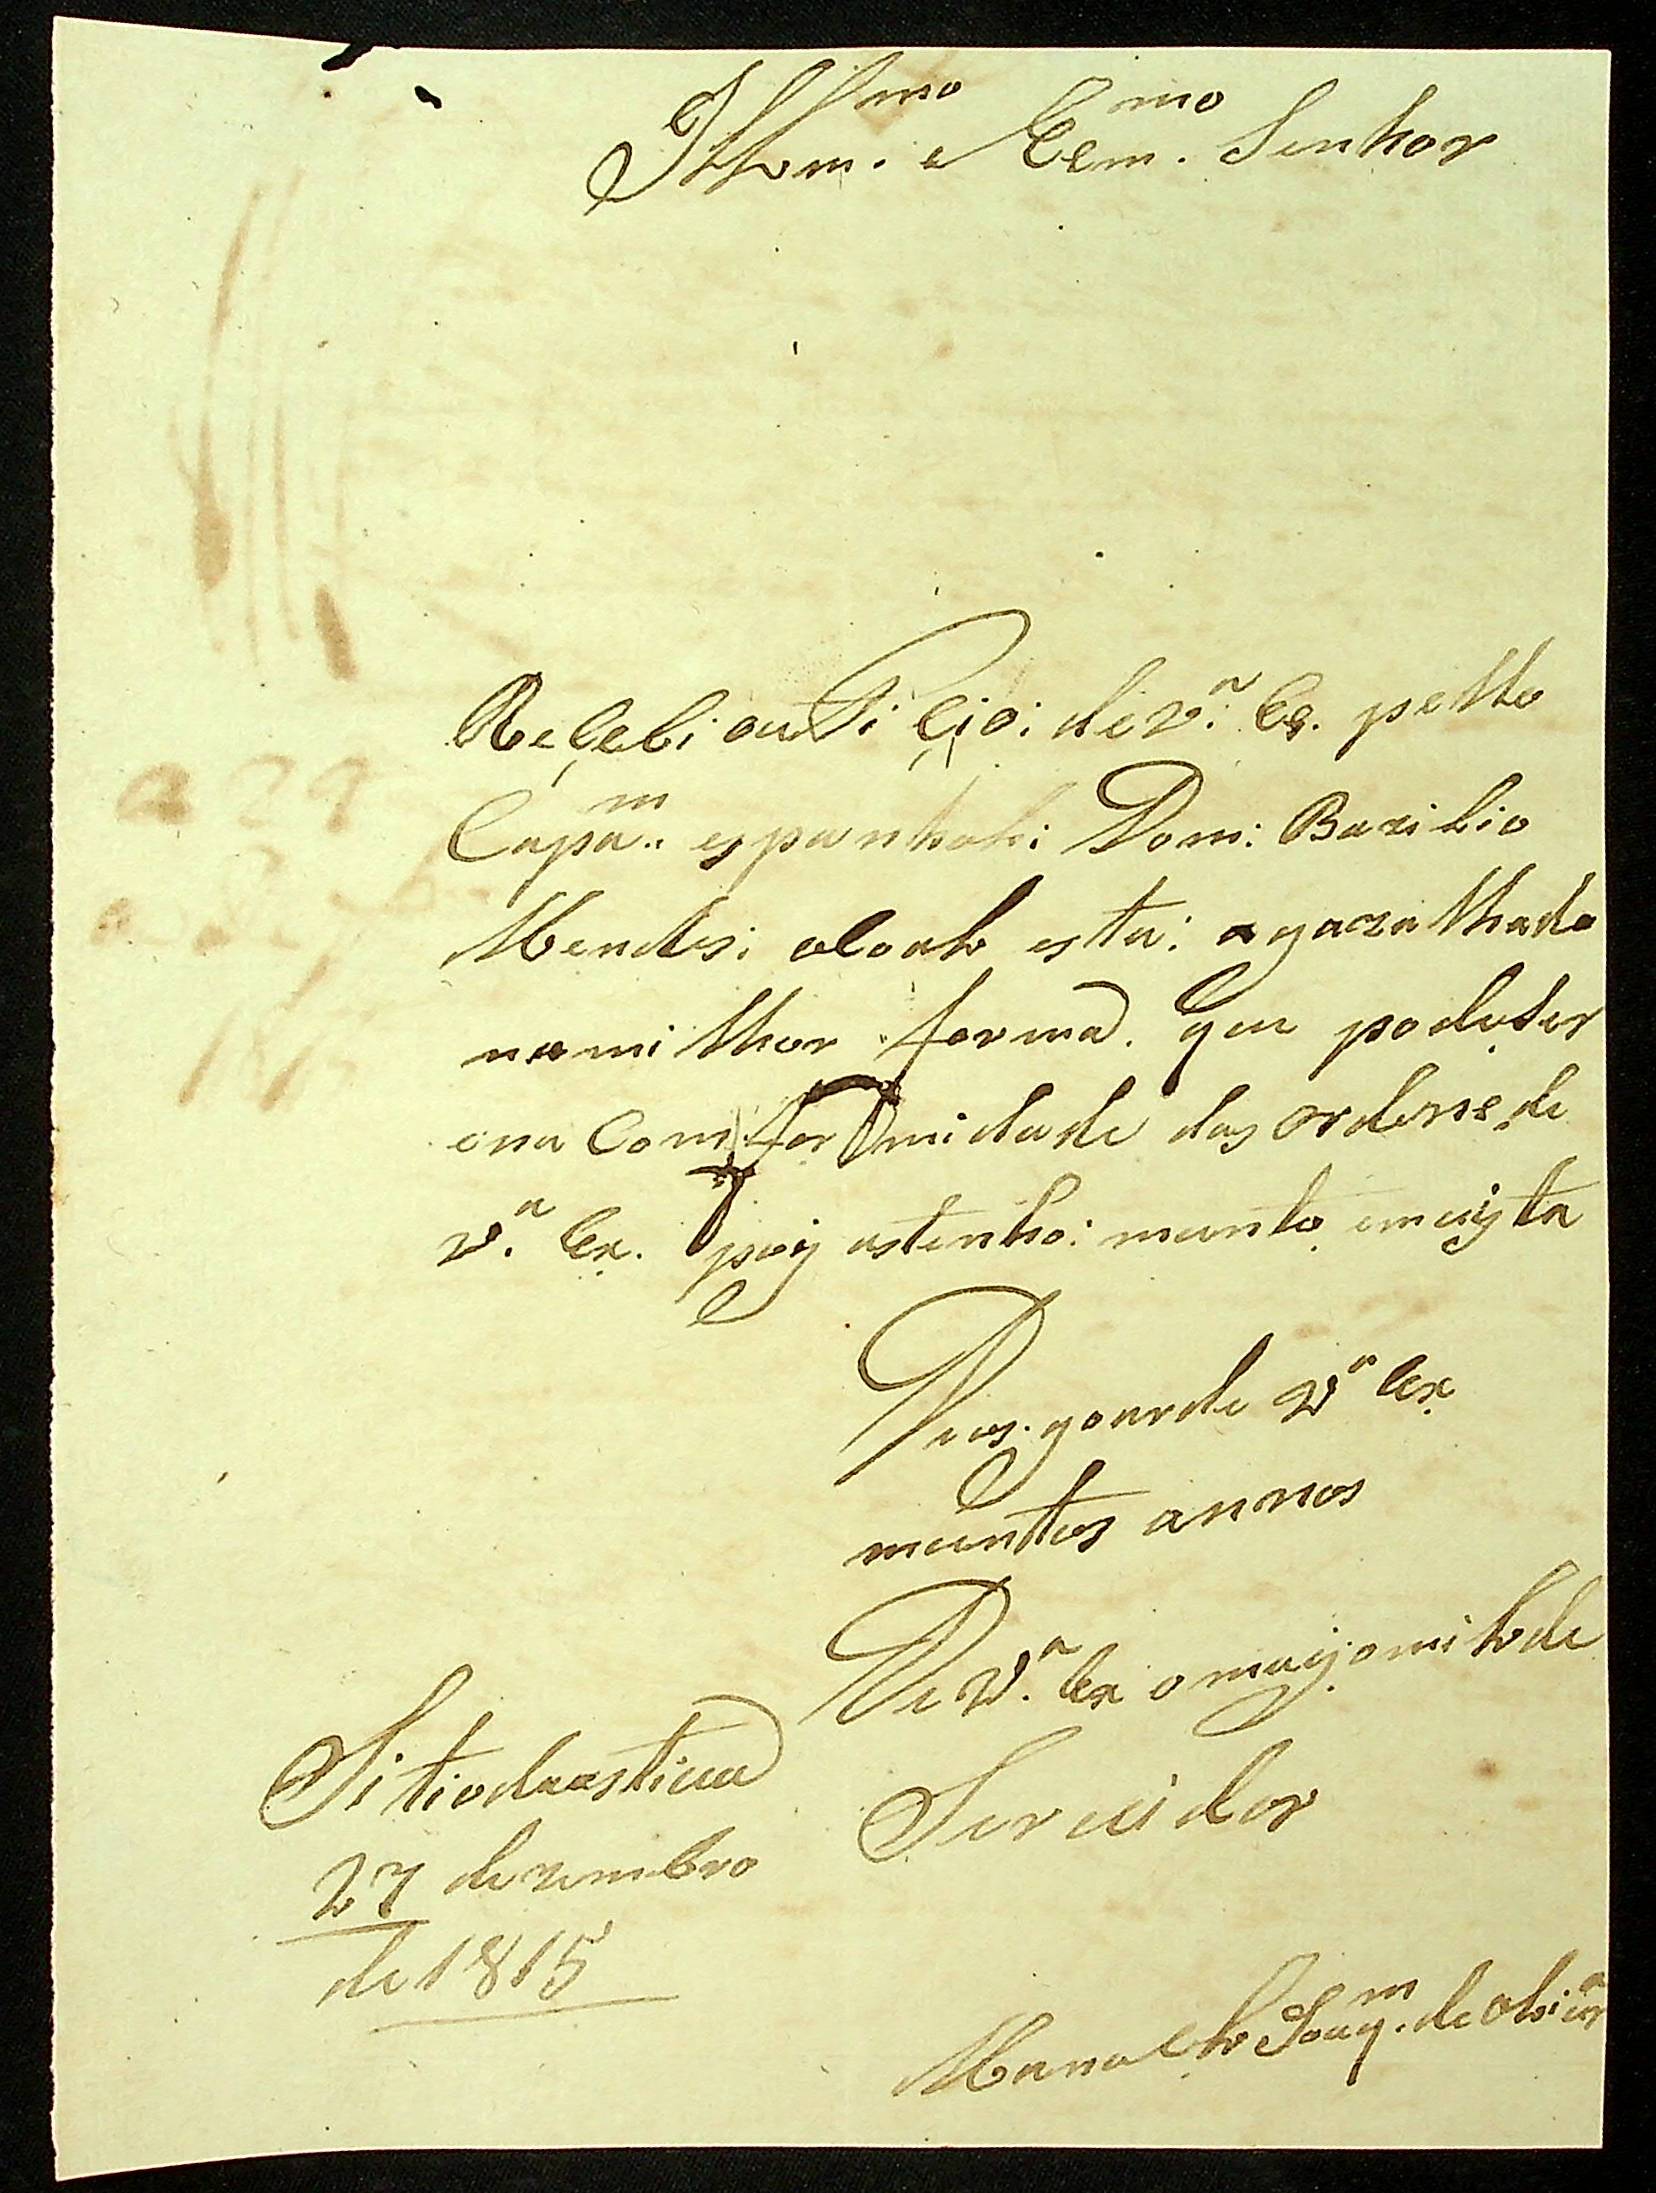 Illm.mo e Eem.mo Senhor
Reçebi outi çio: de v.a Ex. pello
Capa.m espanhol: Dom: Bazilio
Mendes: oloal esta: agazalhado
na milhor forma. que podeser
ena Comformidade das ordens de
v.a Ex. pois astenho: munto emvista
Deos. goarde v.a Ex
muntos annos
De v.a Ex o mais omilde
Servidor
Sitio da estiva
27 dezembro
de 1815
Manoel Joaq.m de oliur.a